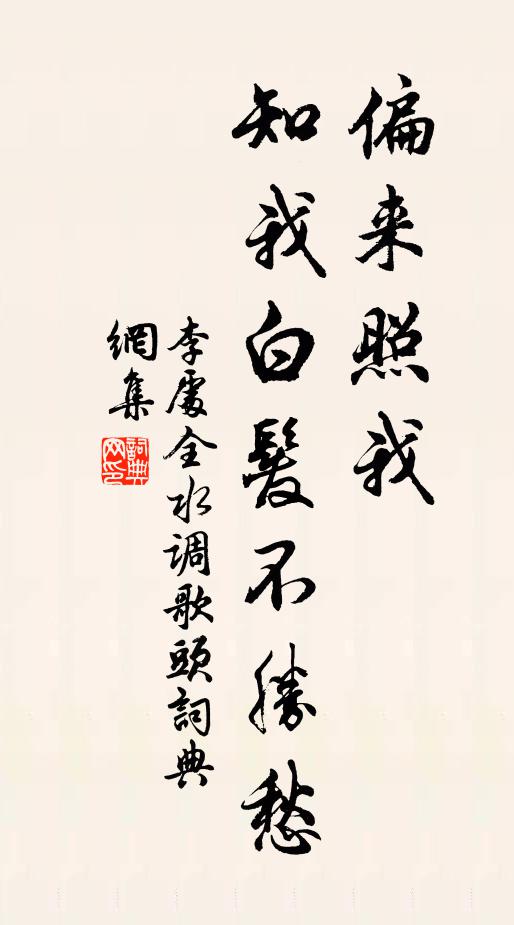 偏来照我
知我白髮不勝愁
李處全水调歌頭詞典
網集
詞典
网印